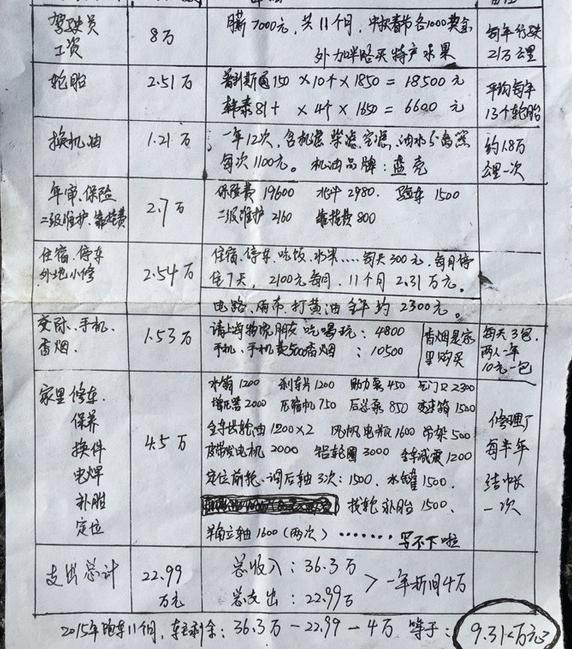 驾驶员
工资
8万
薪7000元,共11个月,中秋春节各1000奖金
外加半路买特产水果
每年行驶
21万公里
轮胎
2.51万
普利斯通150 × 10个 × 1850 = 18500元
韩泰81个 × 4个 × 1650 = 6600元
平均每年
13个轮胎
换机油
1.21万
一年12次,含机滤 柴滤
每次1100元。机油品牌:蓝壳
约1.8万
公里一次
年审、保险
二级维护、靠挂费
2.7万
保险费19600 北斗2980. 验车1500
二级维护2160 靠挂费800
住宿、停车
外地小修
2.54万
住宿、停车、吃饭、水果……每天300元,每月停
住7天,2100元每月.11个月2.31万元。
电路、雨布、打黄油全年约2300元。
交际、手机、
香烟.
1.53万
请上海物流朋友吃喝玩:4800
手机、手机费 香烟:10500
香烟是家
里购买
每天3包.
两人一年
10元一包
家里修车、
保养
换件
电焊
补胎
定位
4.5万
水箱1200 刹车片1200 助力泵450 2300
增压器2000 压缩机750 后总泵850 变速箱1500
全车齿轮油1200×2 电瓶1600 吊架500
发电机2000 铝轮圈3000 全车减震1200
定位前轮、调后轴3次:1500、水罐1500.
找轮补胎1500.
立轴1600(两次)……写不下啦
修理厂
每半年
结帐
一次
支出总计
22.99
万元
总收入:36.3万
总支出:22.99万
> 一年折旧4万
2015年跑车11个月,车主剩余:36.3万-22.99-4万 等于:9.31万元